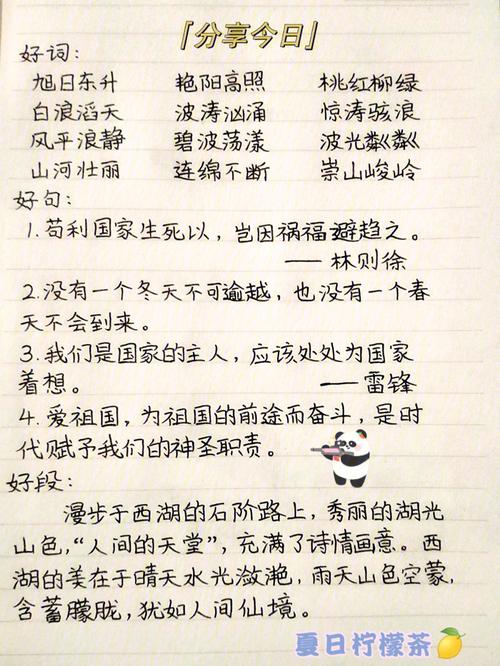 「分享今日」
好词：
旭日东升 艳阳高照 桃红柳绿
白浪滔天 波涛汹涌 惊涛骇浪
风平浪静 碧波荡漾 波光粼粼
山河壮丽 连绵不断 崇山峻岭
好句：
1.苟利国家生死以，岂因祸福避趋之。
——林则徐
2.没有一个冬天不可逾越，也没有一个春
天不会到来。
3.我们是国家的主人，应该处处为国家
着想。 ——雷锋
4.爱祖国，为祖国的前途而奋斗，是时
代赋予我们的神圣职责。
好段：
漫步于西湖的石阶路上，秀丽的湖光
山色，“人间的天堂”，充满了诗情画意。西
湖的美在于晴天水光潋滟，雨天山色空蒙，
含蓄朦胧，犹如人间仙境。
夏日柠檬茶